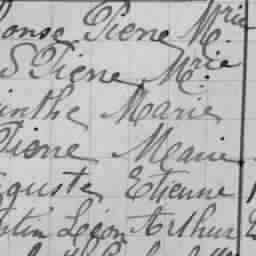 Pierre Mrie
Pierre Mrie
inthe Marie
Pierre Marie
guste Etienne
stin Léon Arthur